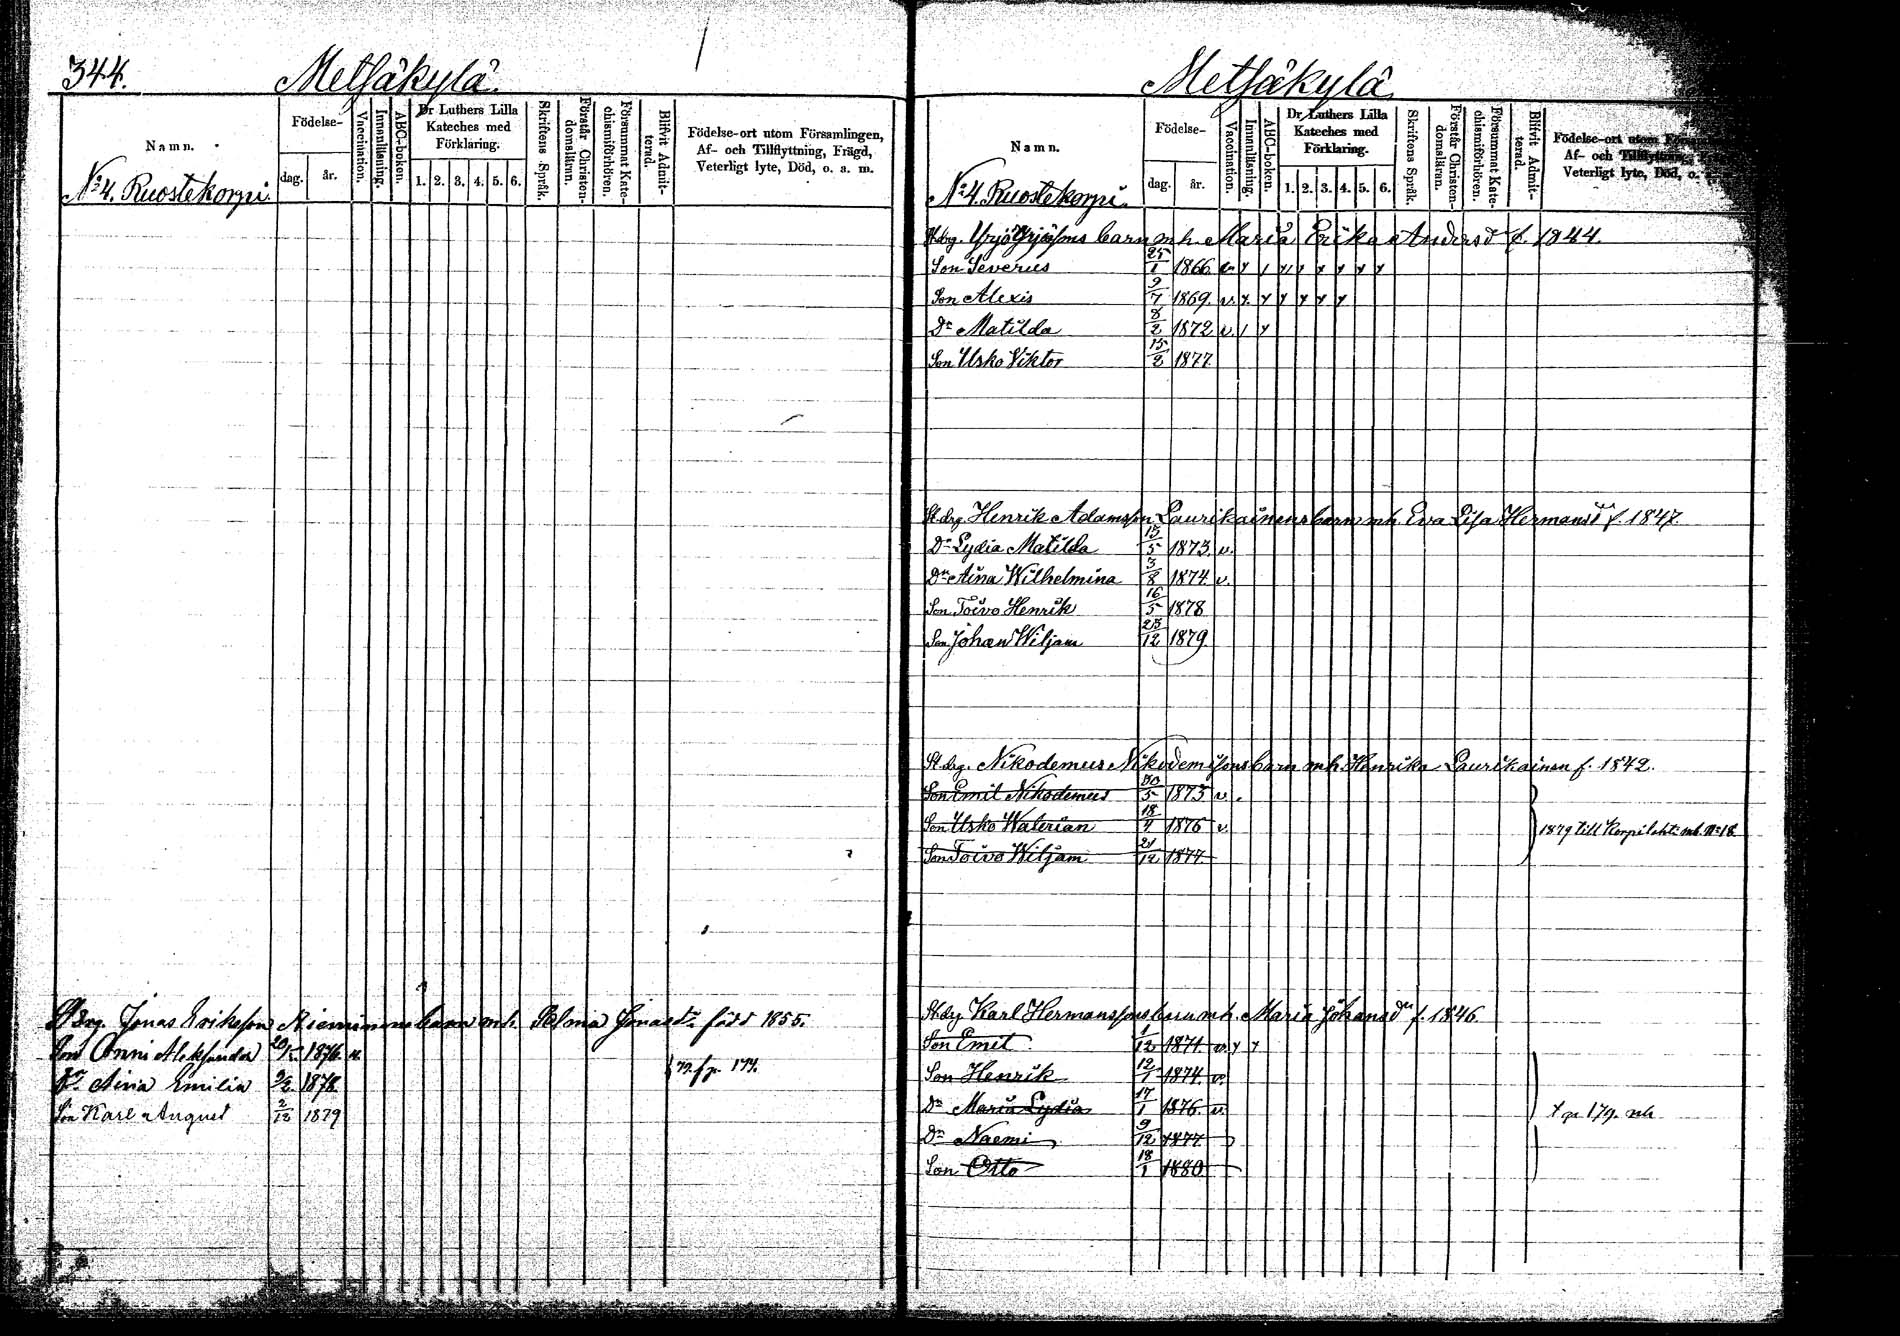 344.
Metsäkylä.
Namn.
Födelse-
dag.
år.
Vaccination.
Innanläsning.
ABC-boken.
Dr Luthers Lilla Kateches med Förklaring.
1. 2. 3. 4. 5. 6.
Skriftens Språk.
Förstår Christendomskunn.
Försummat Katechismiförhören.
Blifvit Admitterad.
Födelse-ort utom Församlingen,
Af- och Tillflyttning, Frägd,
Veterligt lyte, Död, o. a. m.
No 4. Ruostekorpi.
Jonas Eriksson Nieminens barn mh. Jonasdr född 1855.
Son Onni Aleksander 1876. v.
Dr Aina Emilia 9/2 1878.
Son Karl August 2/12 1879
174.
Metsäkylä
Namn.
Födelse-
dag.
år.
Vaccination.
Innanläsning.
ABC-boken.
Dr Luthers Lilla Kateches med Förklaring.
1. 2. 3. 4. 5. 6.
Skriftens Språk.
Förstår Christendomsläran.
Försummat Katechismiförhören.
Blifvit Admitterad.
Födelse-ort utom
Af- och Tillflyttning,
Veterligt lyte, Död, o.
No 4. Ruostekorpi.
St.drg. Yrjö Yrjössons barn mh. Maria Erika Andersdr f. 1844.
Son Severus 25/1 1866 v.
Son Alexis 9/7 1869. v.
Dr Matilda 8/2 1872 v.
Son Usko Viktor 15/2 1877.
St.drg. Henrik Adamsson Laurikainens barn mh. Eva Lisa Hermansdr f. 1847.
Dr Lydia Matilda 15/5 1873. v.
Dr Aina Wilhelmina 3/8 1874. v.
Son Toivo Henrik 16/5 1878
Son Johan Wiljam 25/12 1879.
St.drg. Nikodemus Nikodemssons barn mh. Henrika Laurikainen f. 1842.
Son Emil Nikodemus 30/5 1873 v.
Son Usko Walerian 18/4 1876 v.
Son Toivo Wiljam 21/12 1877
1879 till Korpilahti mh. No 18.
St.drg Karl Hermanssons barn mh. Maria Johansdr f. 1846
Son Emet 1/12 1871. v.
Son Henrik 12/1 1874. v.
Dr Maria Lydia 17/1 1876. v.
Dr Naemi 9/12 1877
Son Otto 18/1 1880
179. mh